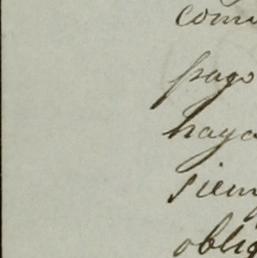 comu
pago
haya
siem
oblig